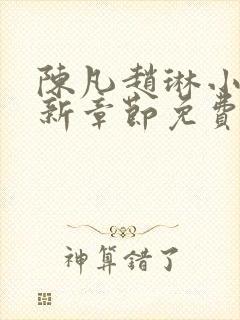 陳凡趙琳小
新章節免費
神算錯了